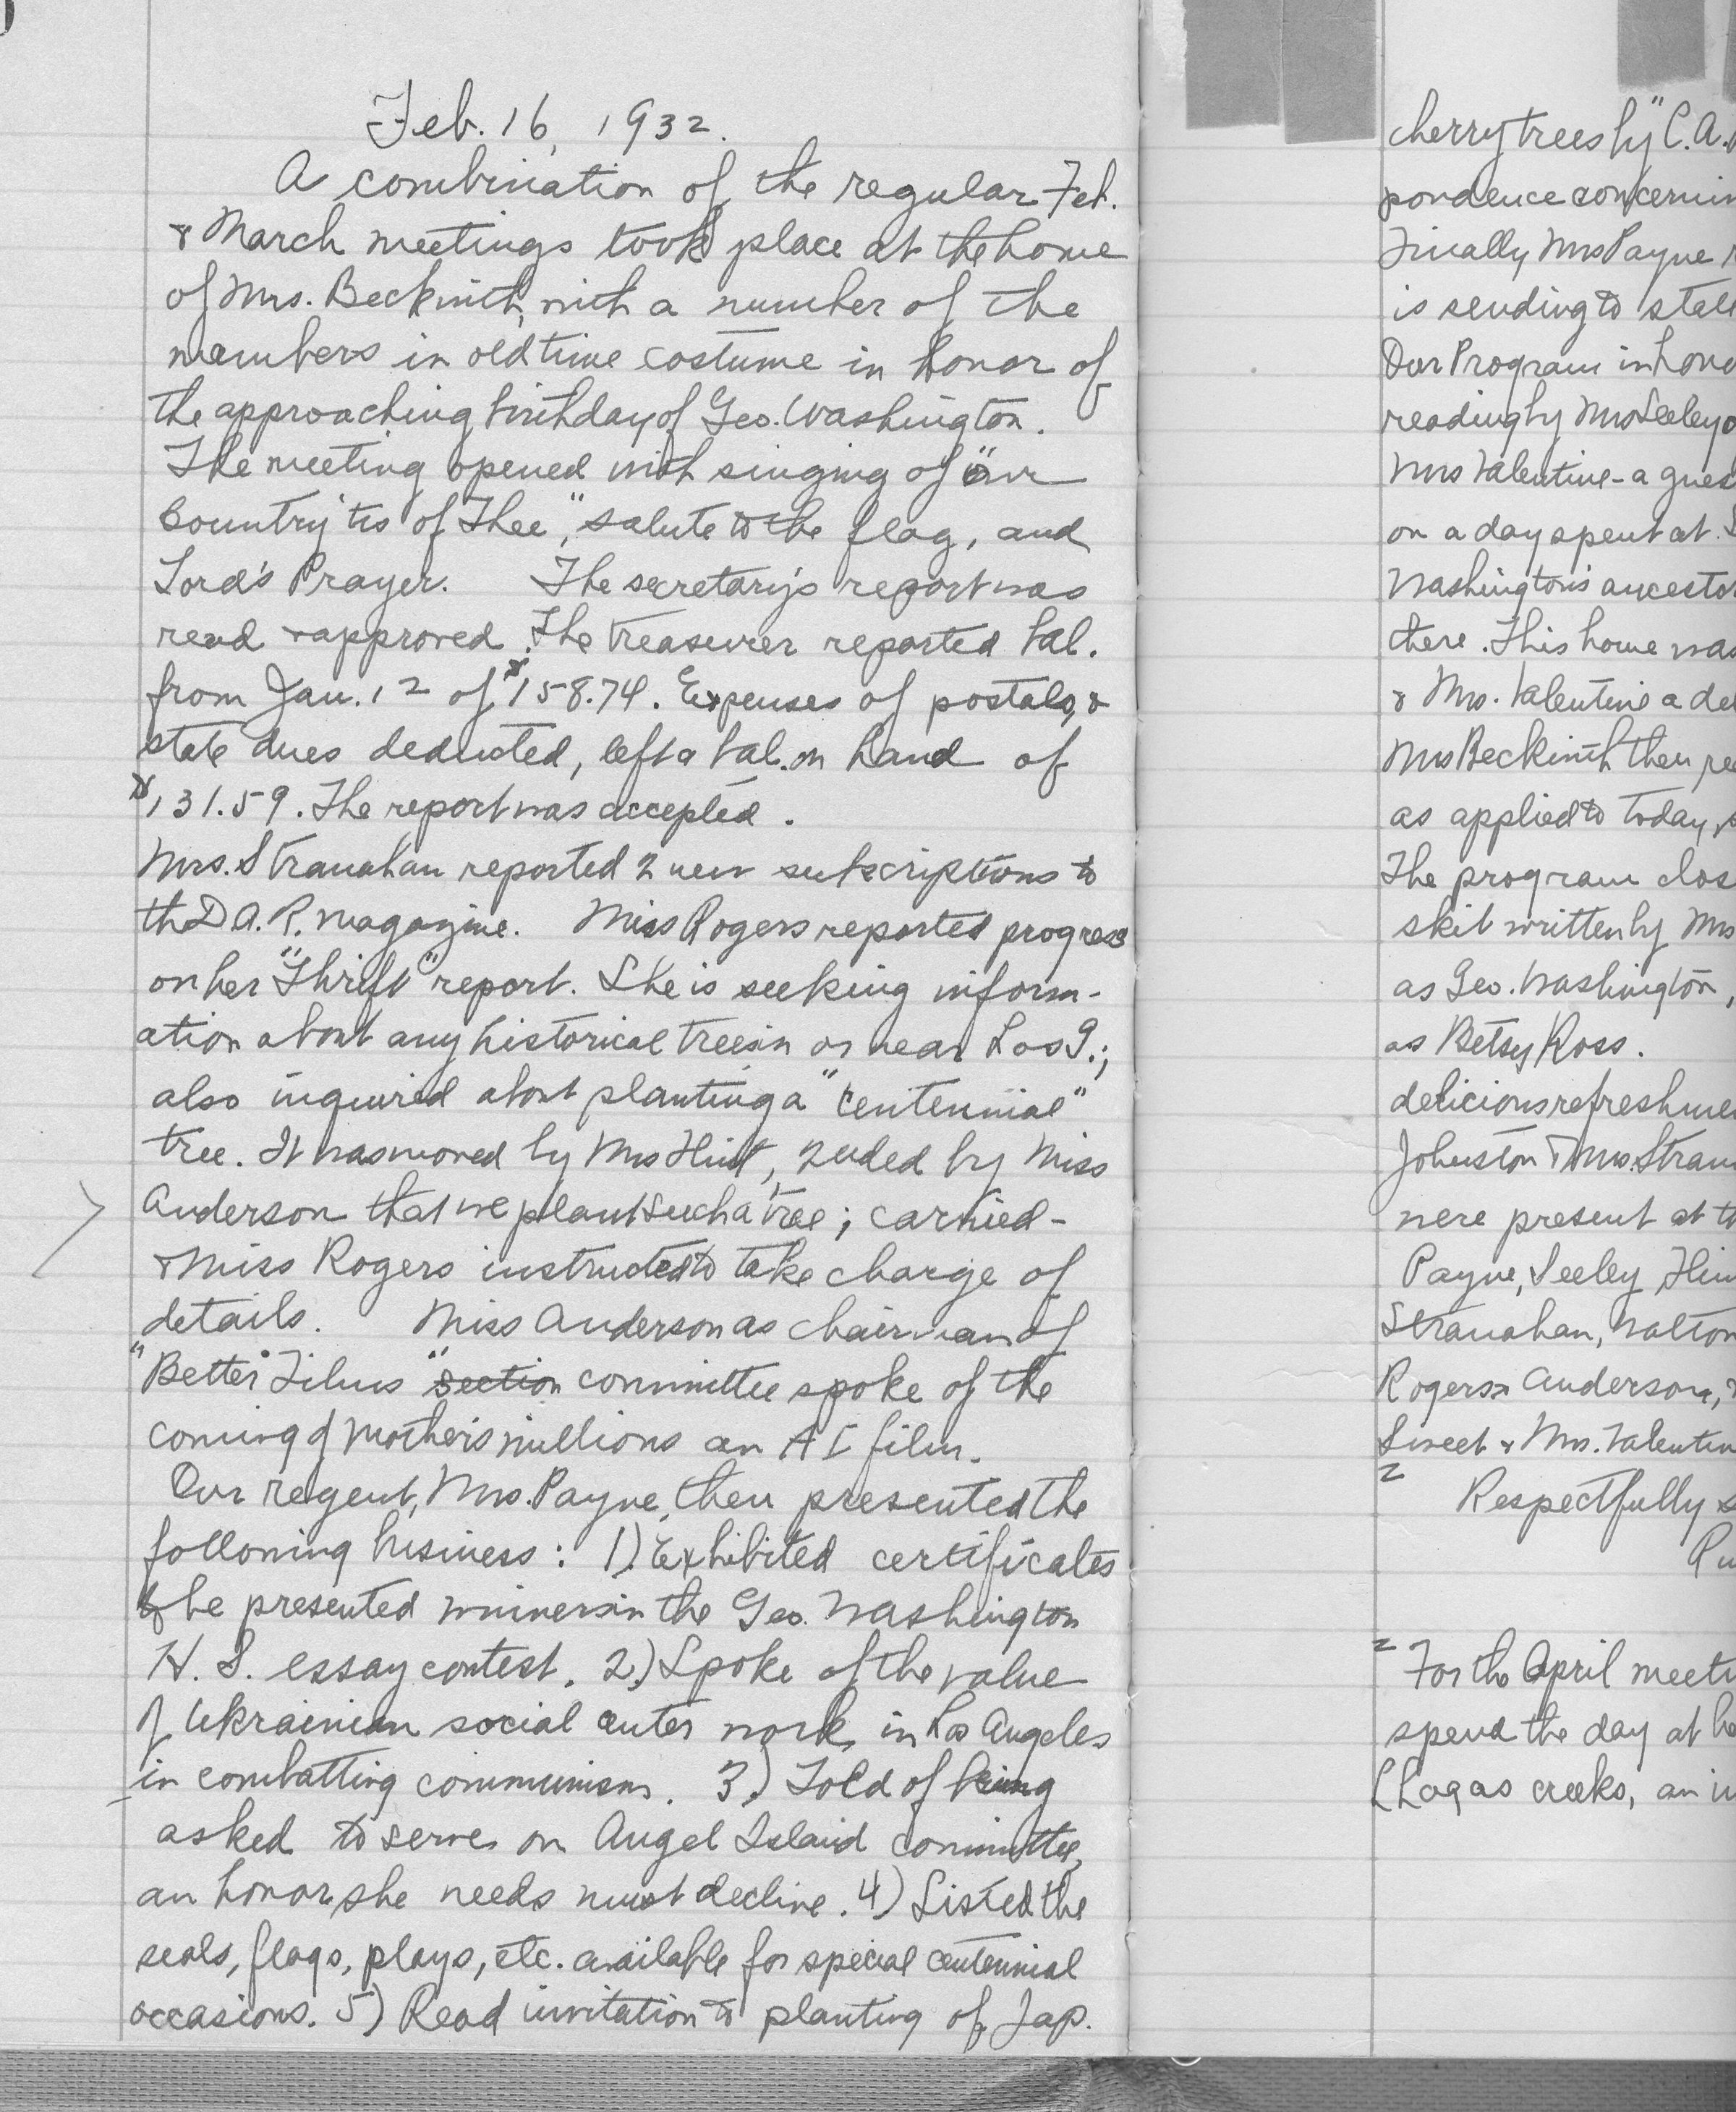 Feb. 16, 1932.
A combination of the regular Feb.
& March meetings took place at the home
of Mrs. Beckwith, with a number of the
members in old time costume in honor of
the approaching birthday of Geo. Washington.
The meeting opened with singing of "Our
Country tis of Thee", salute to the flag, and
Lord's Prayer. The secretary's report was
read & approved. The treasurer reported bal.
from Jan. 12 of $158.74. Expenses of postals, &
state dues deducted, left a bal. on hand of
$131.59. The report was accepted.
Mrs. Stranahan reported 2 new subscriptions to
the D.A.R. magazine. Miss Rogers reported progress
on her "Thrift" report. She is seeking inform-
ation about any historical trees in or near Los G.;
also inquired about planting a "centennial"
tree. It was moved by Mrs Hunt, 2nded by Miss
Anderson that we plant such a tree; carried -
& Miss Rogers instructed to take charge of
details. Miss Anderson as chairman of
"Better Films" section committee spoke of the
coming of Mother's millions an A1 film.
Our regent, Mrs. Payne, then presented the
following business: 1) Exhibited certificates
to be presented winners in the Geo. Washington
H. S. essay contest. 2.) Spoke of the value
of Ukrainian social center work in Los Angeles
in combatting communism. 3.) Told of being
asked to serve on Angel Island committee,
an honor she needs must decline. 4) Listed the
seals, flags, plays, etc. available for special centennial
occasions. 5) Read invitation to planting of Jap.
cherry trees by "C.A.
pondence concernin
Finally Mrs Payne
is sending to state
Our Program in hono
reading by Mrs Seeley
Mrs Valentine - a gues
on a day spent at
Washington's ancesto
there. This home was
& Mrs. Valentine a de
Mrs Beckwith then re
as applied to today,
The program clos
skit written by Mrs
as Geo. Washington,
as Betsy Ross.
delicious refreshme
Johnston & Mrs. Stran
were present at th
Payne, Seeley,
Stranahan, Walton
Rogers & Anderson,
Sweet & Mrs. Valentin
=
Respectfully s
Ru
= For the April meeti
spend the day at he
Llagas creeks, an i